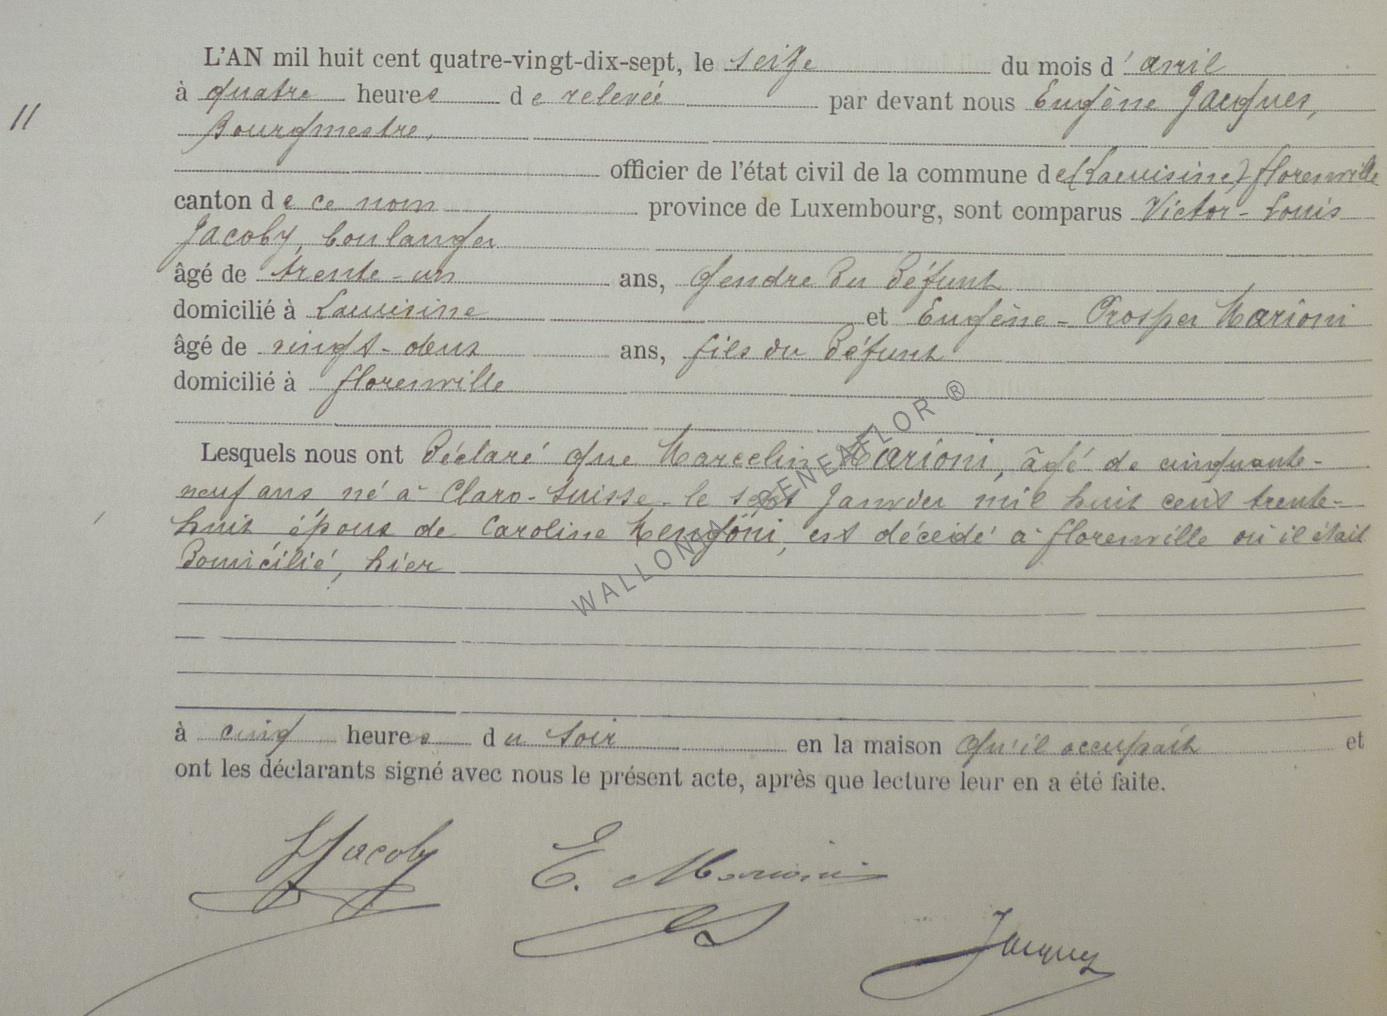 L'AN mil huit cent quatre-vingt-dix-sept, le seize du mois d'avril
à quatre heures de relevée par devant nous Eugène Jacques,
11
Bourgmestre,
officier de l'état civil de la commune de (Lacuisine) Florenville
canton de ce nom province de Luxembourg, sont comparus Victor-Louis
Jacoby, boulanger
âgé de trente-un ans, gendre du défunt
domicilié à Lacuisine et Eugène-Prosper Marioni
âgé de vingt-deux ans, fils du défunt
domicilié à Florenville
Lesquels nous ont déclaré que Marcelin Marioni, âgé de cinquante-
neuf ans né à Claro-Suisse le sept Janvier mil huit cent trente-
huit époux de Caroline, est décédé à Florenville où il était
domicilié, hier
WALLONIA GENEAFLOR ®
à cinq heures du soir en la maison qu'il occupait et
ont les déclarants signé avec nous le présent acte, après que lecture leur en a été faite.
Jacoby E. Marioni
Jacques